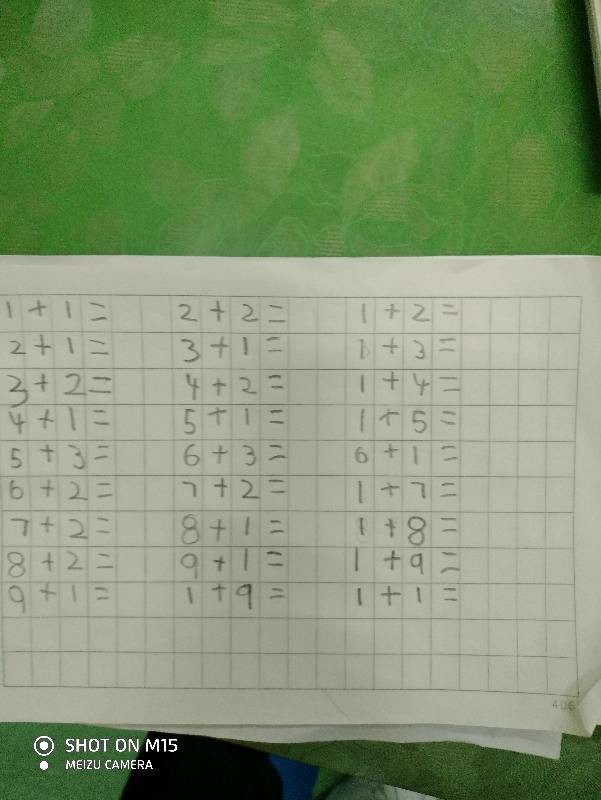 1+1= 2+2= 1+2=
2+1= 3+1= 1+3=
3+2= 4+2= 1+4=
4+1= 5+1= 1+5=
5+3= 6+3= 6+1=
6+2= 7+2= 1+7=
7+2= 8+1= 1+8=
8+2= 9+1= 1+9=
9+1= 1+9= 1+1=
406
SHOT ON M15
MEIZU CAMERA